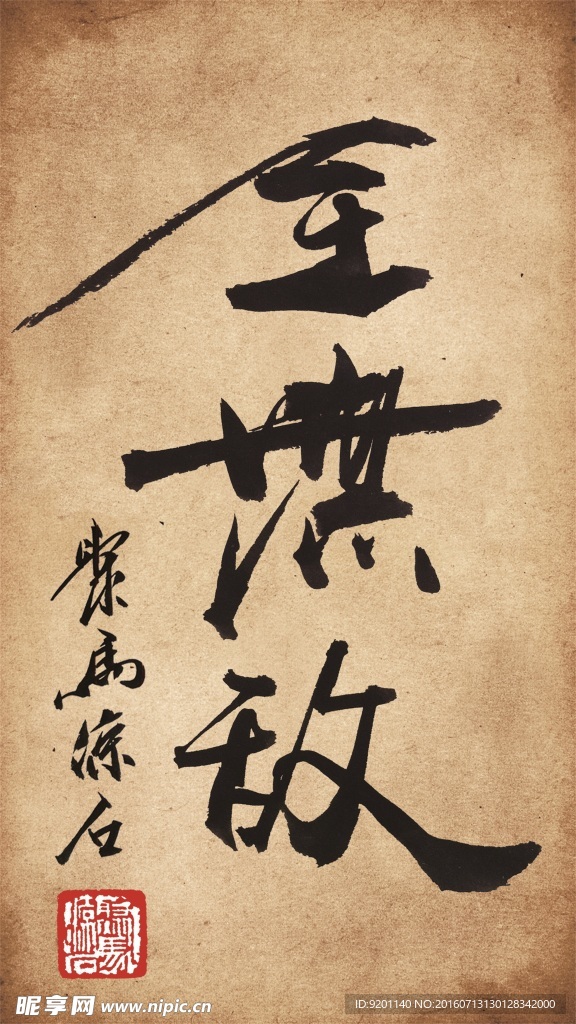 全無敌
聚馬涼石
昵享网 www.nipic.cn
ID:9201140 NO:20160713130128342000